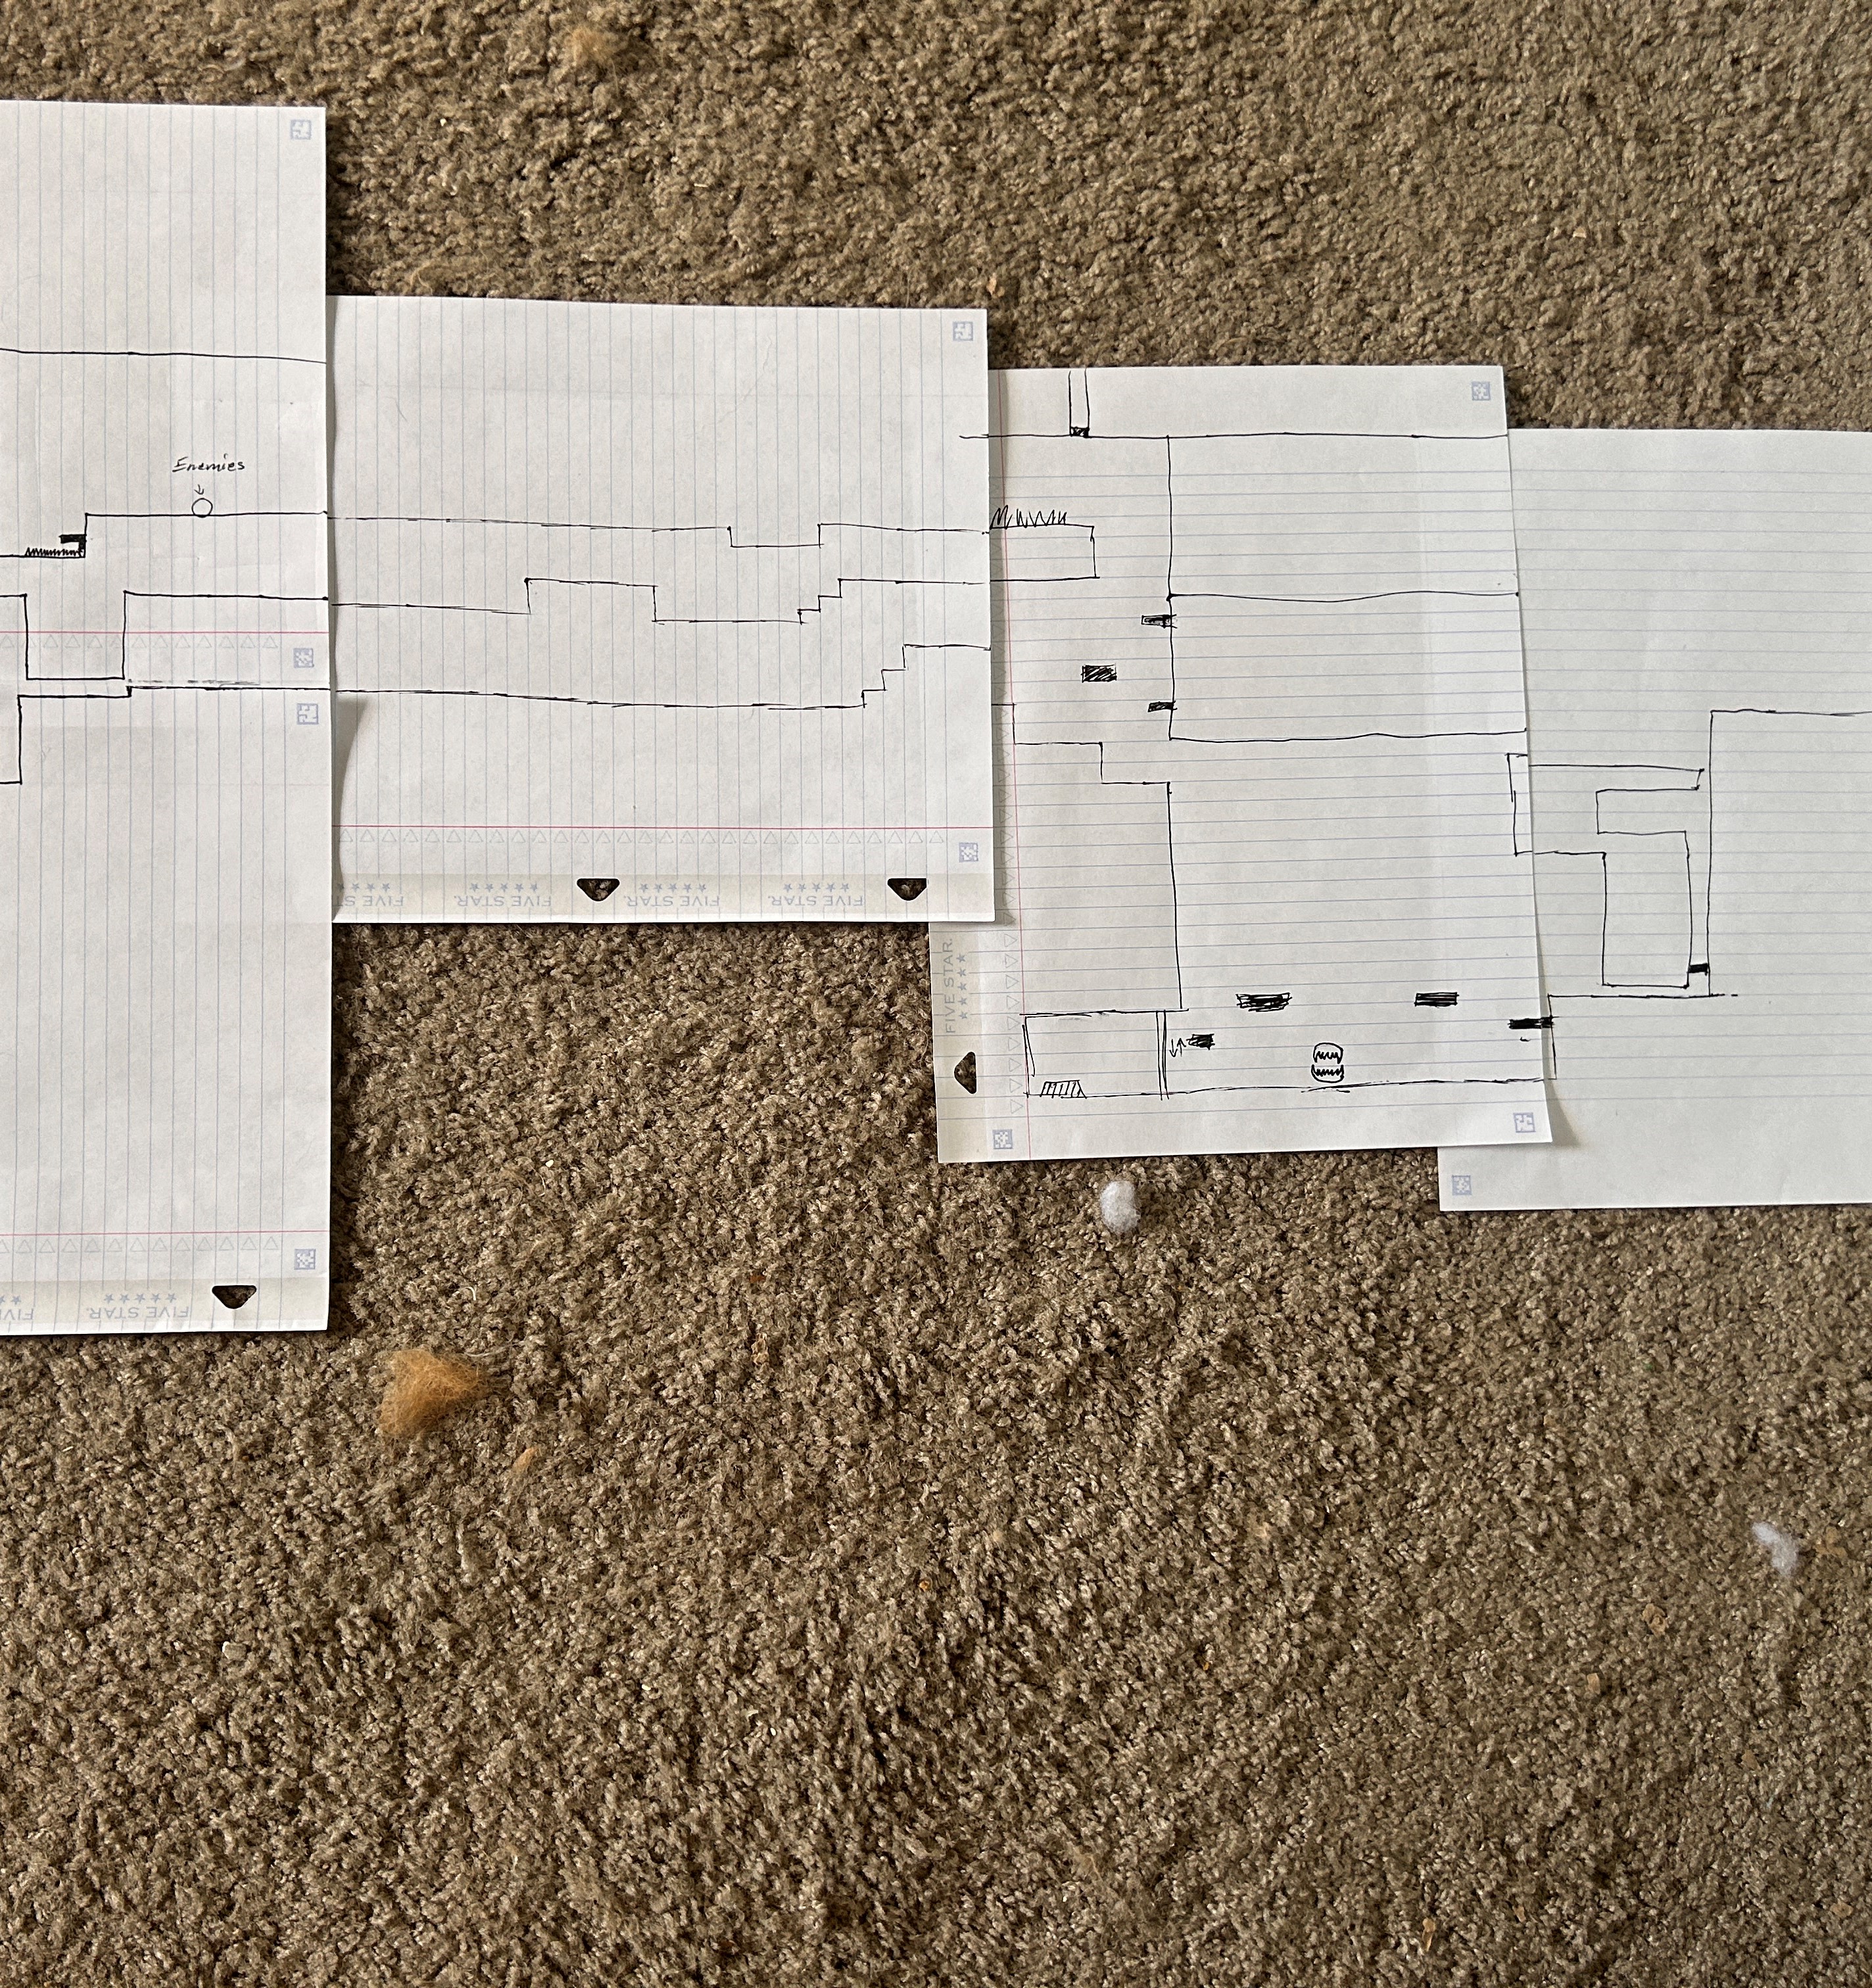 Enemies
FIVE ST
FIVE STAR
FIVE STAR
FIVE STAR
FIVE STAR
FIVE STAR
FIV